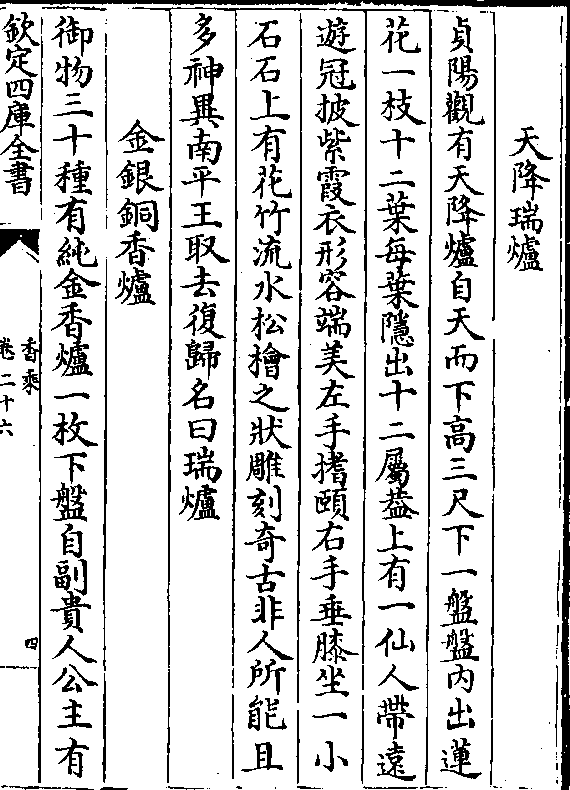 天降瑞爐
貞陽觀有天降爐自天而下高三尺下一盤盤内出蓮
花一枝十二葉每葉隱出十二屬葢上有一仙人帶逺
遊冠披紫霞衣形容端美左手搘頤右手垂膝坐一小
石石上有花竹流水松檜之狀雕刻奇古非人所能且
多神異南平王取去復歸名曰瑞爐
金銀銅香爐
御物三十種有純金香爐一枚下盤自副貴人公主有
欽定四庫全書
香乘
卷二十六
四